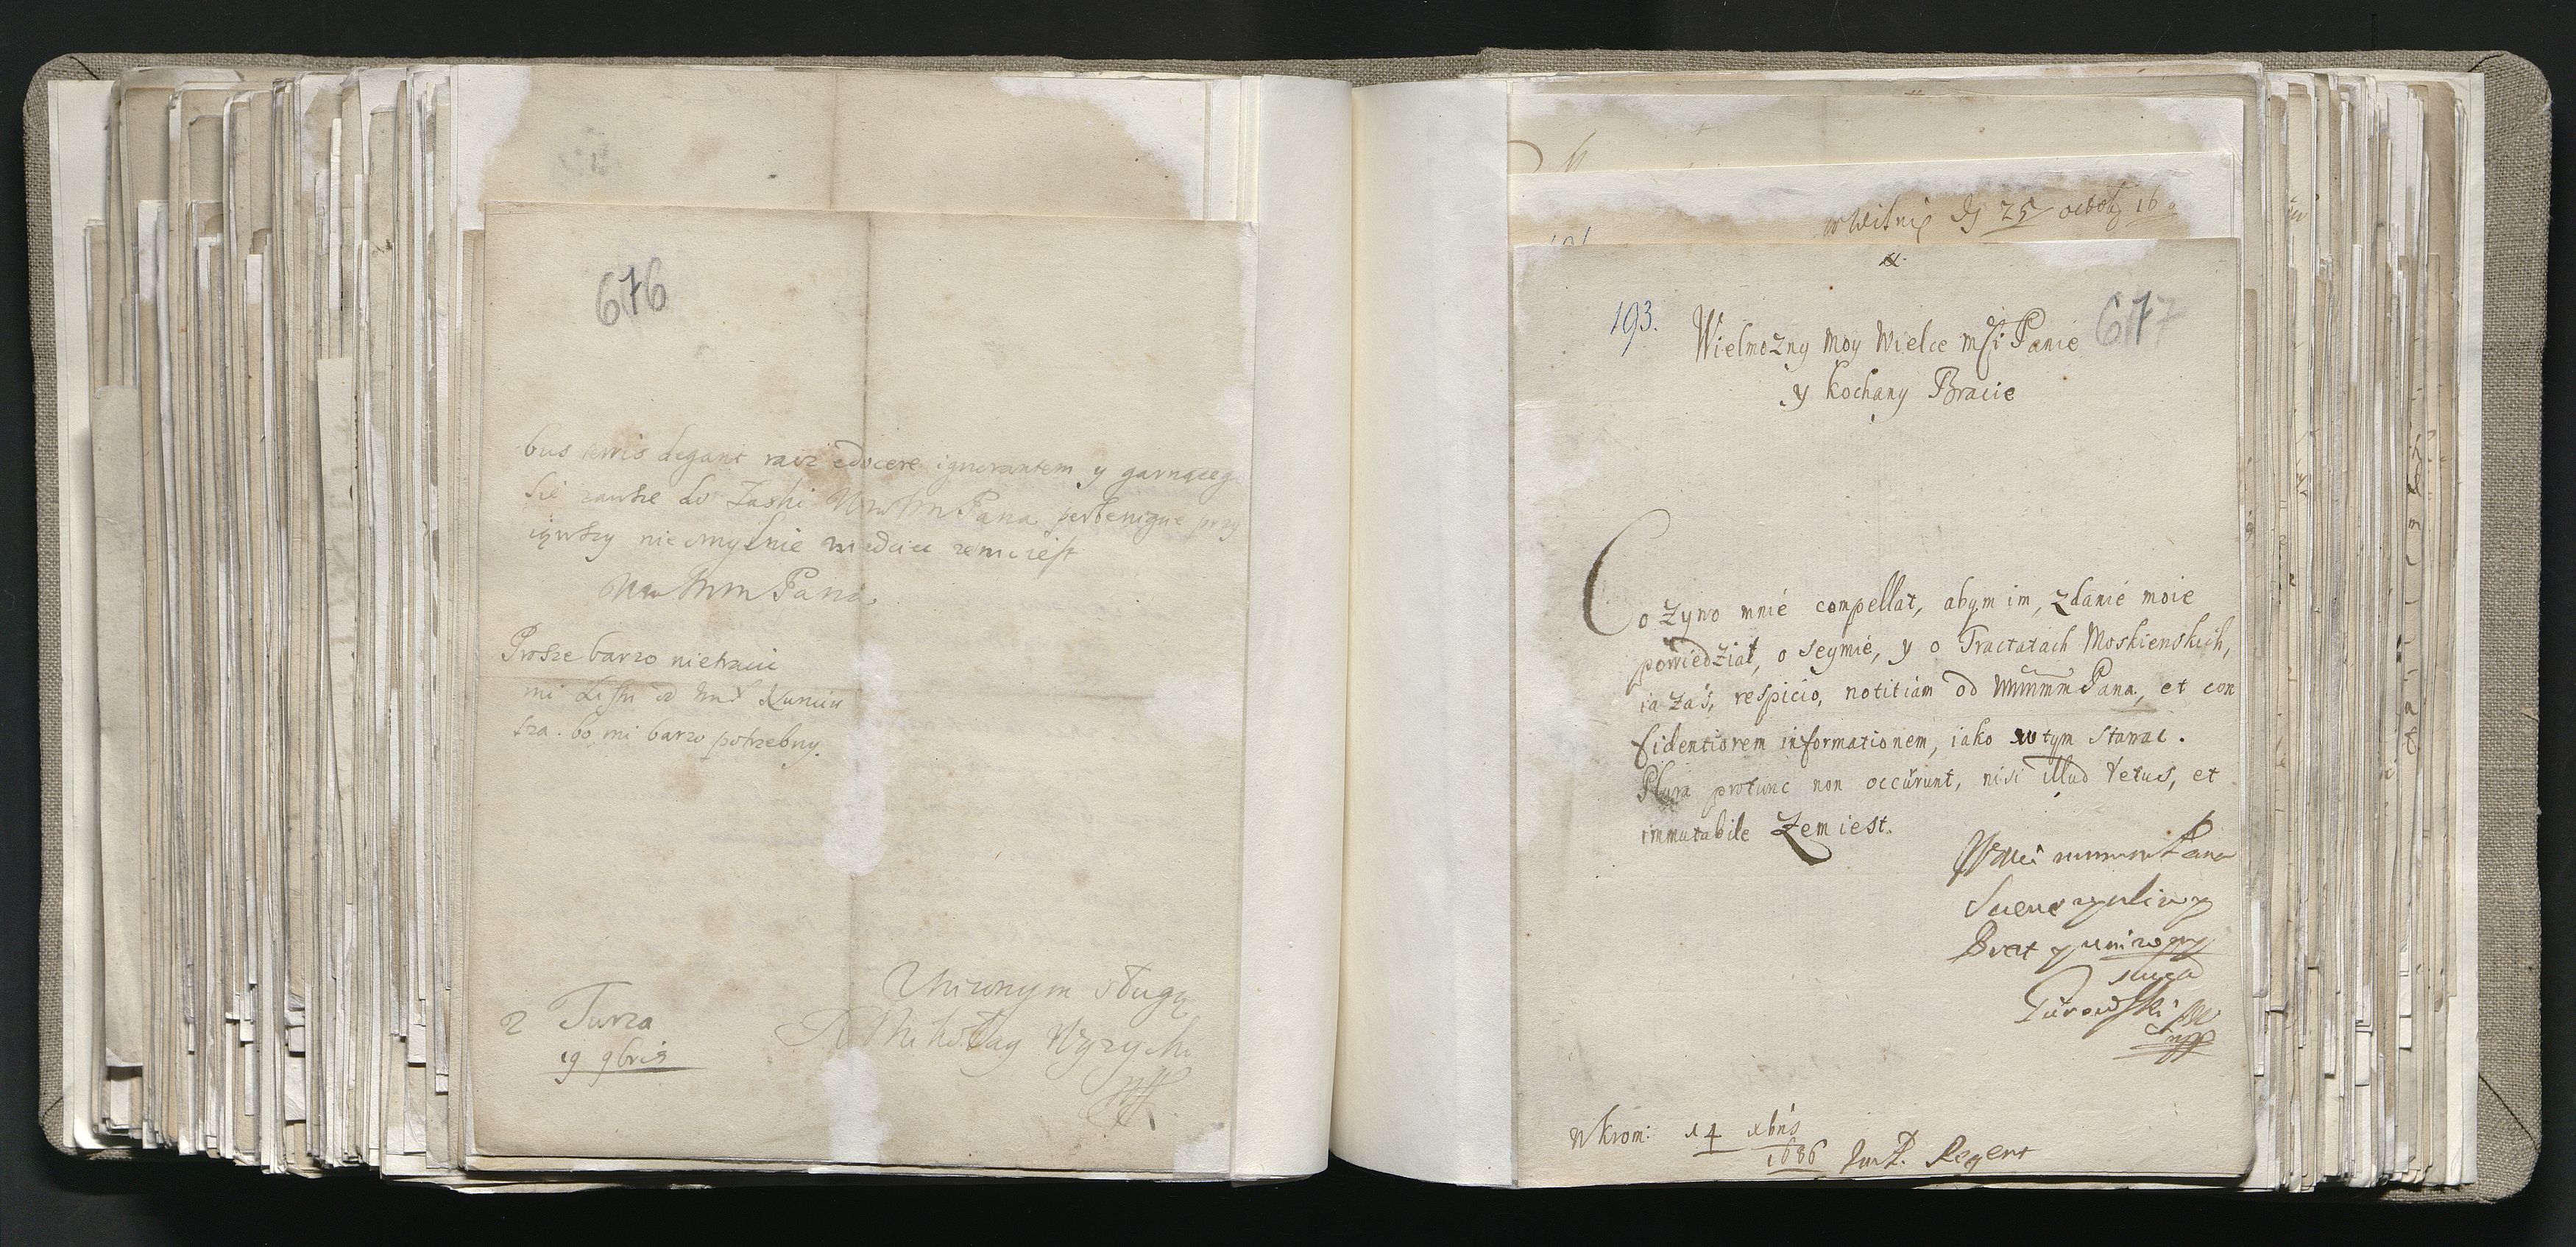 676
bus terris degant racz edocere ignorantem y garnąceg
się zawsze do Łaski WmMPana perbenigne przy
iąwszy nieomylnie
Pana
Prosze barzo nietraci
mi Listu od
bo mi barzo potrzebny.
z Turza
19 9bris
Uniżonym sługą
Mikołay Wyzycki
w Wilnie dj 25 octobr 16
193.
677
Wielmożny Moy Wielce mści Panie
y kochany Bracie
Co Żywo mnie compellat, abym im, zdanie moie
powiedział, o seymie, y o Tractatach Moskiewskich,
ia zaś, respicio, notitiam od WmmmPana, et con
fidentiorem informationem, iako w tym stawac.
Plura protunc non occurunt, nisi illud vetus, et
immutabile Żem iest.
Pana
Szczerze zycliwy
Brat y unizony
sługa
Turowski
mpp
w krom: d 4 xbris
1686 Regent